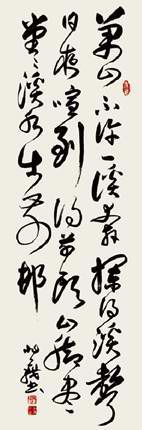 萬山不許一溪奔攔得溪聲
日夜喧到得前頭山腳盡
堂〻溪水出前邨
書